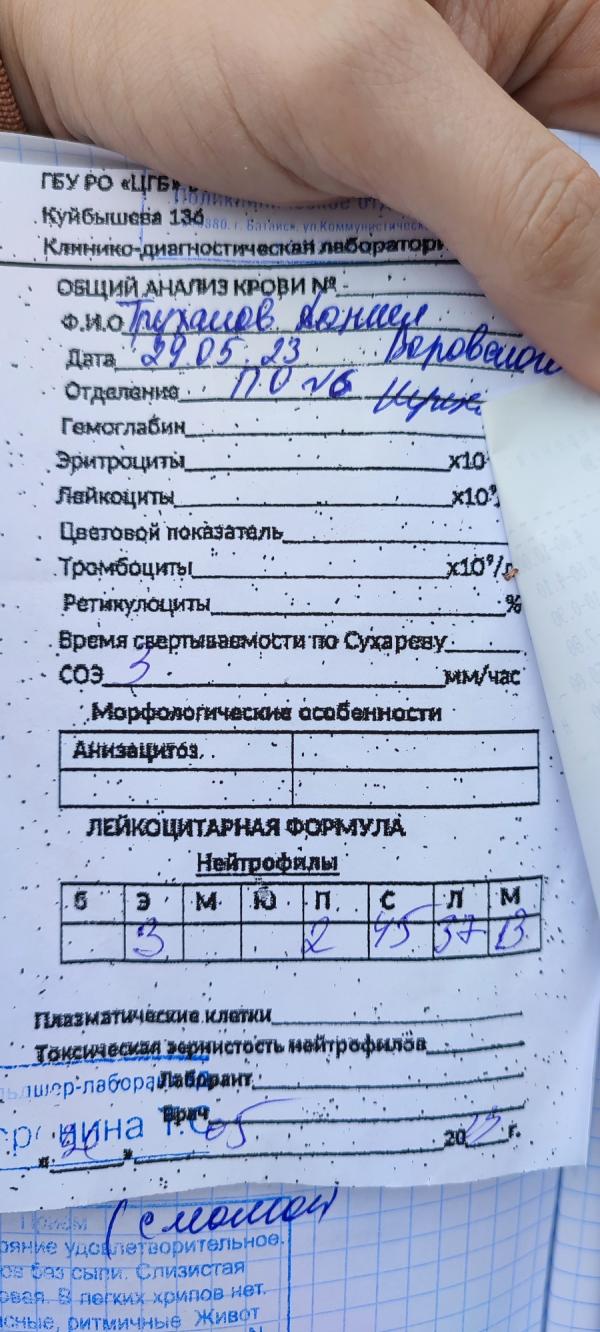 ГБУ РО «ЦГБ»
Куйбышева 136
380. г. Батайск, ул.Коммунистическая
Клинико-диагностическая лаборатори
ОБЩИЙ АНАЛИЗ КРОВИ №
Ф.И.О Труханов
Дата 29.05.23
Отделение ПО №6
Гемоглабин
Эритроциты х10
Лейкоциты х10⁹
Цветовой показатель
Тромбоциты х10⁹/л
Ретикулоциты %
Время свертываемости по Сухареву
СОЭ 3 мм/час
Морфологические особенности
Анизацитоз
ЛЕЙКОЦИТАРНАЯ ФОРМУЛА
Нейтрофилы
б Э М Ю П С Л М
3 2 45 37 13
Плазматические клетки
Токсическая зернистость нейтрофилов
льдшер-лаборант
Лаборант
Врач
нина Т.С
05 20 23 г.
Прием (с мамой)
яние удовлетворительное.
ов без сыпи. Слизистая
овая. В легких хрипов нет.
сные, ритмичные Живот